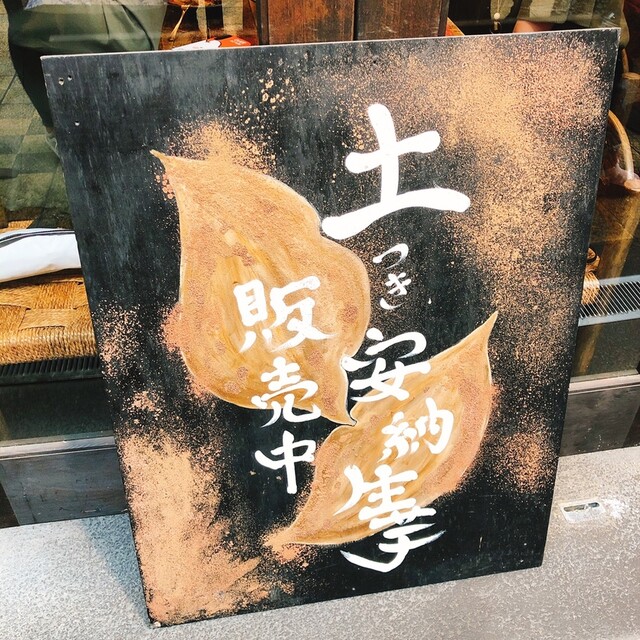 土つき安納生芋
販売中